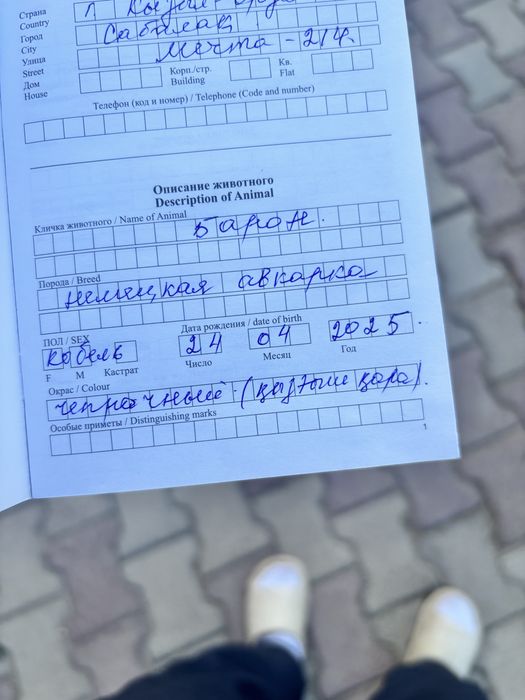 Страна
Country
Город Сабалак
City
Улица Мечта - 214
Street
Дом Корп./стр. Кв.
House Building Flat
Телефон (код и номер) / Telephone (Code and number)
Описание животного
Description of Animal
Кличка животного / Name of Animal
Барон.
Порода / Breed
немецкая авкарка
ПОЛ / SEX Дата рождения / date of birth
кобель 24 04 2025.
F M Кастрат Число Месяц Год
Окрас / Colour
чепрачный (
Особые приметы / Distinguishing marks
1